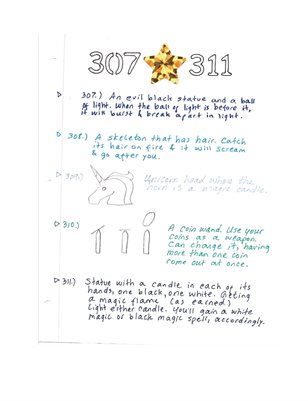 307 311
307.) An evil black statue and a ball
of light. When the ball of light is before it,
it will burst & break apart in light.
308.) A skeleton that has hair. Catch
its hair on fire & it will scream
& go after you.
309.) Unicorn head where the
horn is a magic candle.
310.) A coin wand. Use your
coins as a weapon.
Can change it, having
more than one coin
come out at once.
311.) Statue with a candle in each of its
hands; one black, one white. Getting
a magic flame (as earned)
light either candle. You'll gain a white
magic or black magic spell, accordingly.